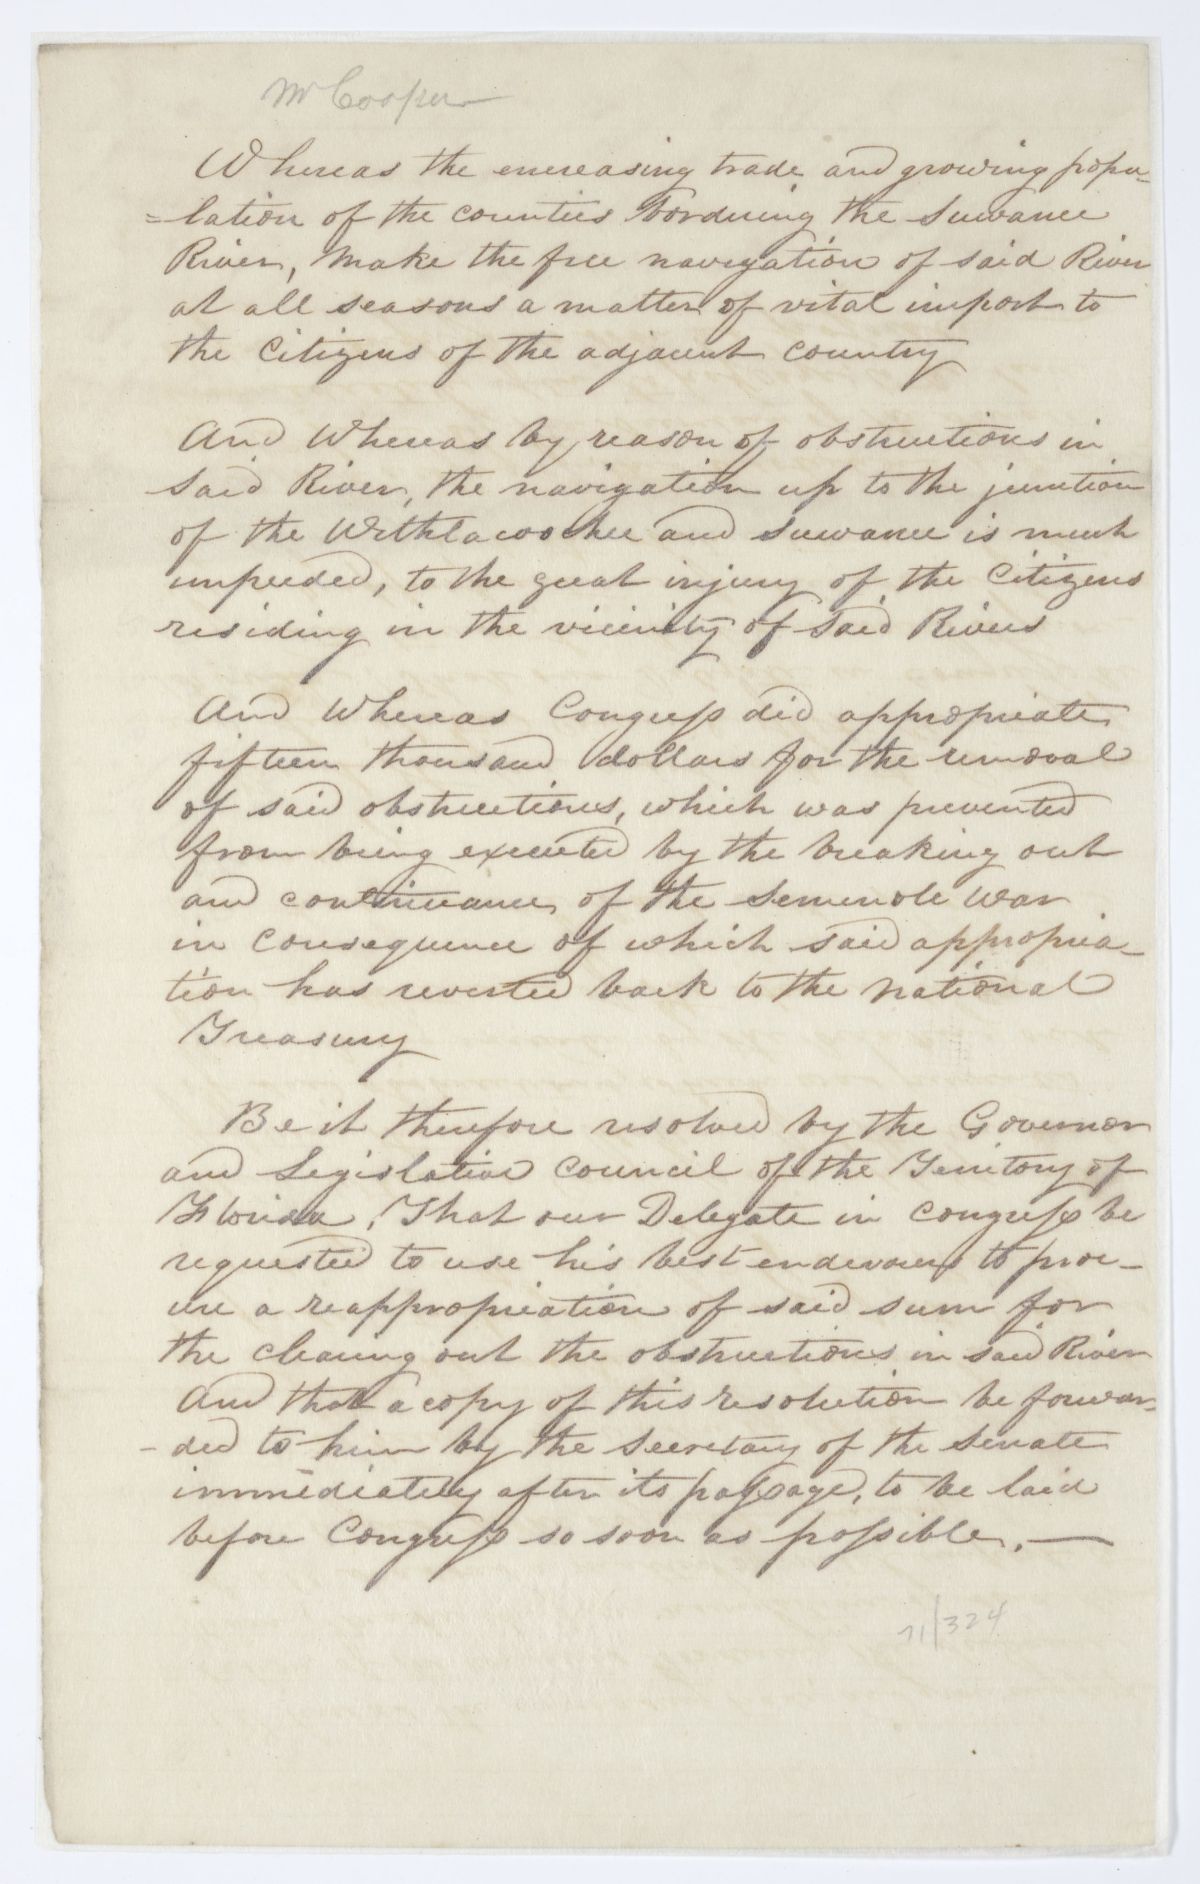 Mr Cooper
Whereas the encreasing trade and growing popu-
=lation of the counties bordering the Suwanee
River, make the free navigation of said River
at all seasons a matter of vital import to
the Citizens of the adjacent country
And Whereas by reason of obstructions in
said River, the navigation up to the junction
of the Withlacoochee and Suwanee is much
impeeded, to the great injury of the Citizens
residing in the vicinity of said Rivers
And Whereas Congress did appropriate
fifteen thousand dollars for the removal
of said obstructions, which was prevented
from being executed by the breaking out
and continuance of the Semenole War
in consequence of which said appropria-
tion has reverted back to the national
Treasury
Be it therefore resolved by the Governor
and Legislative Council of the Territory of
Florida, That our Delegate in Congress be
requested to use his best endevours to proc-
ure a reappropriation of said sum for
the clearing out the obstructions in said River
And that a copy of this resolution be forwar-
-ded to him by the Secretary of the Senate
immediately after its passage, to be laid
before Congress so soon as possible. —
71/324